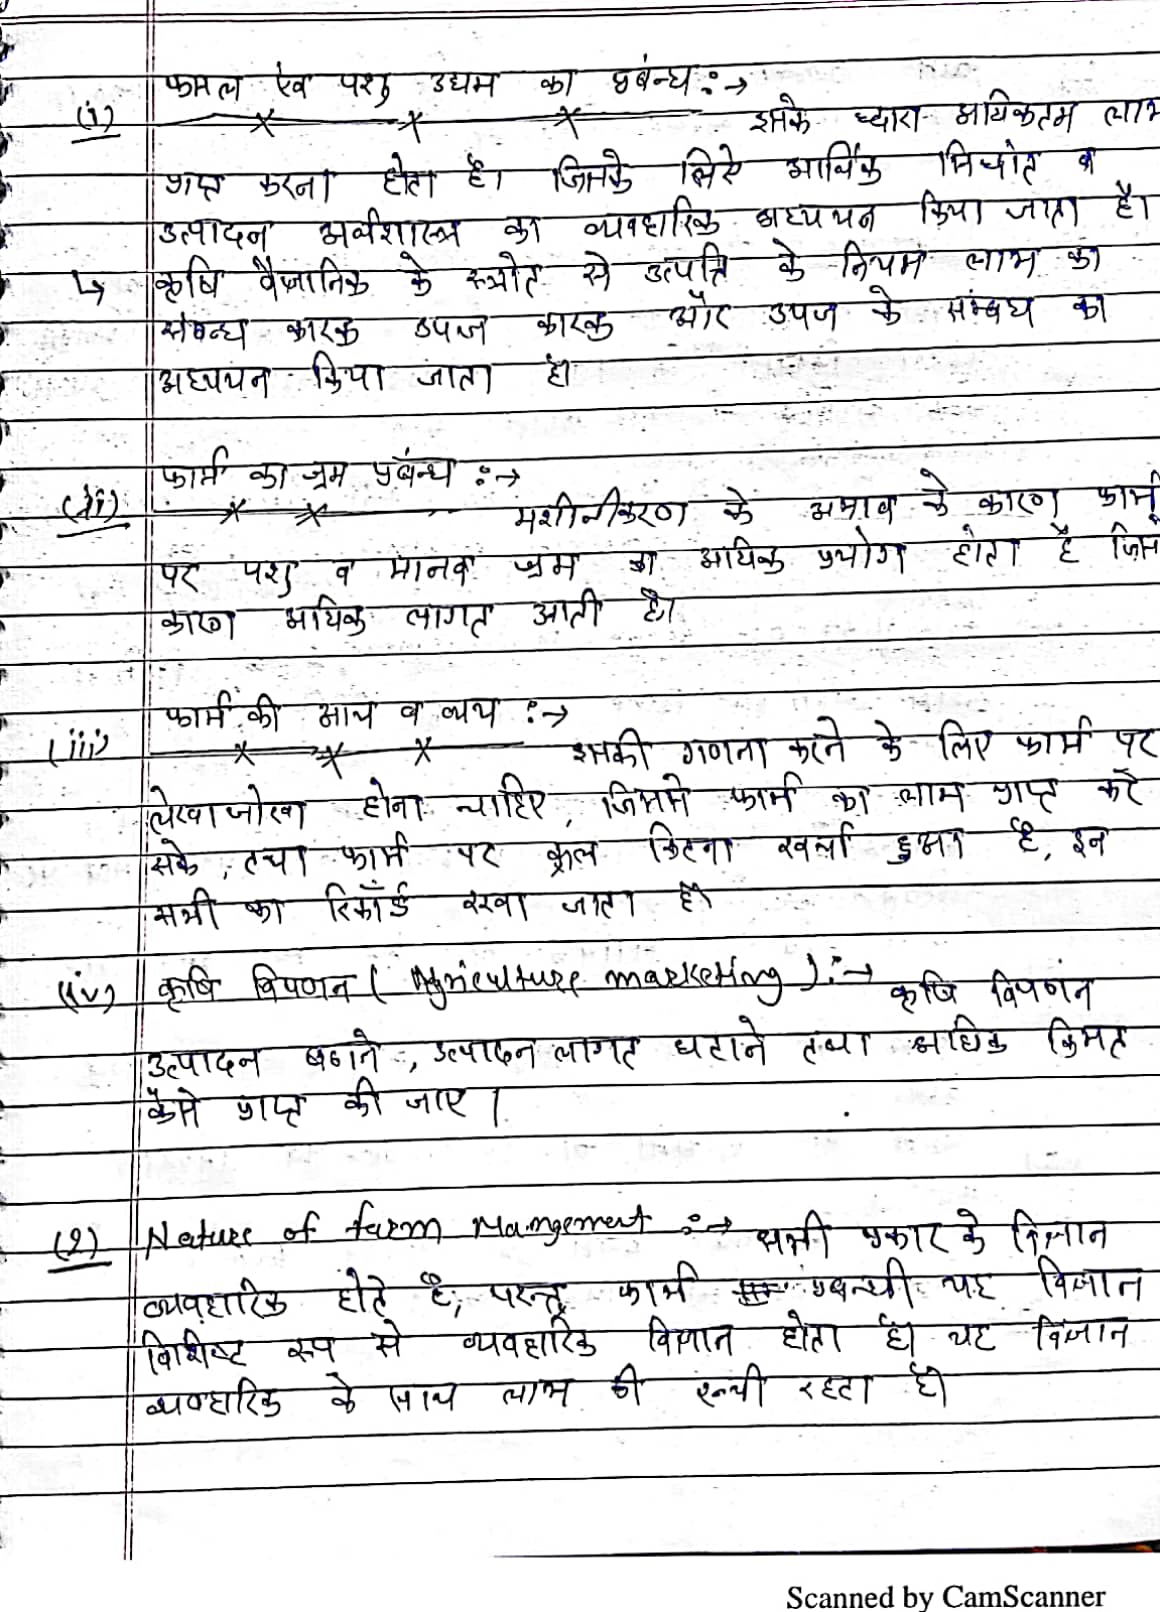 (i) फसल एंव पशु उद्यम का प्रबंन्ध :→
इसके ध्दारा अधिकतम लाभ
प्राप्त करना होता है। जिसके लिऐ आर्थिक सिधांत व
उत्पादन अर्थशास्त्र का व्यवहारिक अध्ययन किया जाता है।
↳ कृषि वैज्ञानिक के स्त्रोत से उत्पत्ति के नियम लाभ का
संबन्ध कारक उपज कारक और उपज के संम्बध का
अध्ययन किया जाता है।
(ii) फार्म का श्रम प्रबंन्ध :→
मशीनीकरण के अभाव के कारण फार्म
पर पशु व मानव श्रम का अधिक प्रयोग होता है जिस
कारण अधिक लागत आती है।
(iii) फार्म की आय व व्यय :→
इसकी गणना करने के लिए फार्म पर
लेखा जोखा होना चाहिए, जिससे फार्म का लाभ प्राप्त करे
सके, तथा फार्म पर कूल कितना खर्चा हुआ है, इन
सभी का रिकॉर्ड रखा जाता है।
(iv) कृषि विपणन ( Agriculture marketing ) :→ कृषि विपणंन
उत्पादन बढाने, उत्पादन लागत घटाने तथा अधिक किमत
कैसे प्राप्त की जाए |
(2) Nature of farm Mangement :→ सभी प्रकार के विज्ञान
व्यवहारिक होते है, परन्तू फार्म प्रबन्धी यह विज्ञान
विशिष्ट रूप से व्यवहारिक विज्ञान होता है। यह विज्ञान
व्यवहारिक के साथ लाभ की रूची रहता है।
Scanned by CamScanner